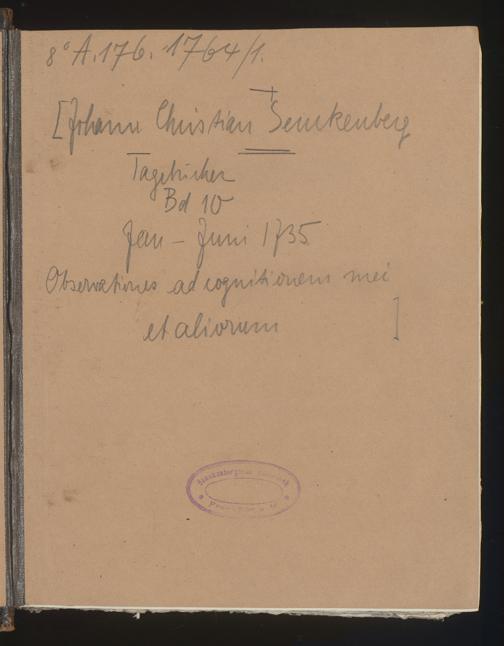 8° A.176. 1764/1.
[Johann Christian Senckenberg
Tagebücher
Bd 10
Jan - Juni 1735
Observationes ad cognitionem mei
et aliorum ]